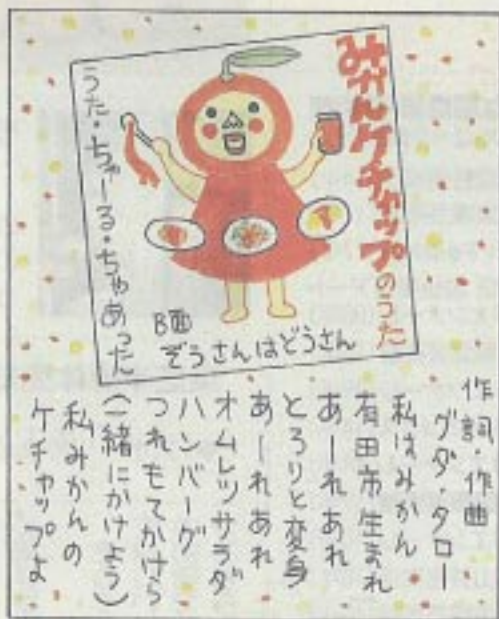 みかんケチャップのうた
うた・ちゃーる・ちゃあった
B面
ぞうさんはどうさん
作詞・作曲
グダ・タロー
私はみかん
有田市生まれ
あーれあれ
とろりと変身
あーれあれ
オムレツサラダ
ハンバーグ
つれもてかけら
(一緒にかけよう)
私みかんの
ケチャップよ